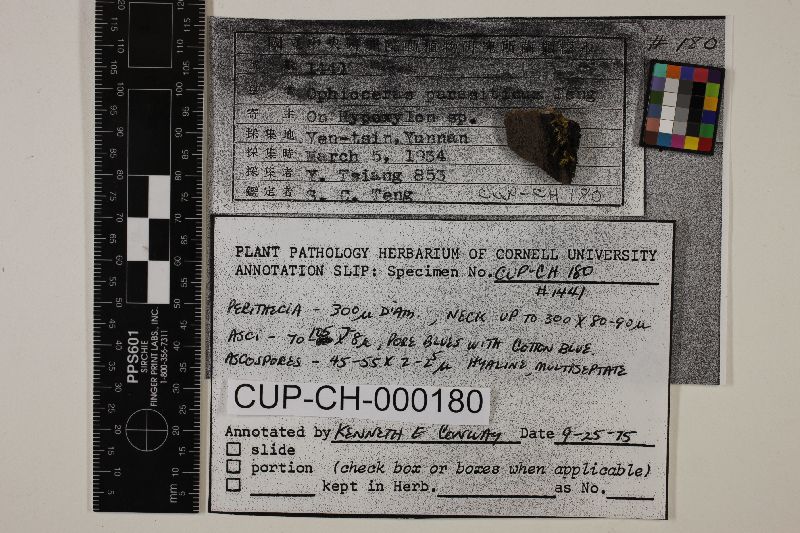 # 180
1441
Ophioceras parasiticum Teng
寄 主 On Hypoxylon sp.
採集地 Yen-tsin, Yunnan
採集時 March 5, 1934
採集者 Y. Tsiang 853
鑑定者 S. C. Teng CUP-CH 180
PLANT PATHOLOGY HERBARIUM OF CORNELL UNIVERSITY
ANNOTATION SLIP: Specimen No. CUP-CH 180
#1441
PERITHECIA - 300µ DIAM., NECK UP TO 300 X 80-90µ
ASCI - TO 105 X 8µ, PORE BLUES WITH COTTON BLUE.
ASCOSPORES - 45-55 X 2-2.5µ HYALINE, MULTISEPTATE
CUP-CH-000180
Annotated by KENNETH E CONWAY Date 9-25-75
slide
portion (check box or boxes when applicable)
kept in Herb. as No.
PPS601
SIRCHIE
FINGER PRINT LABS, INC.
1-800-356-7311
mm